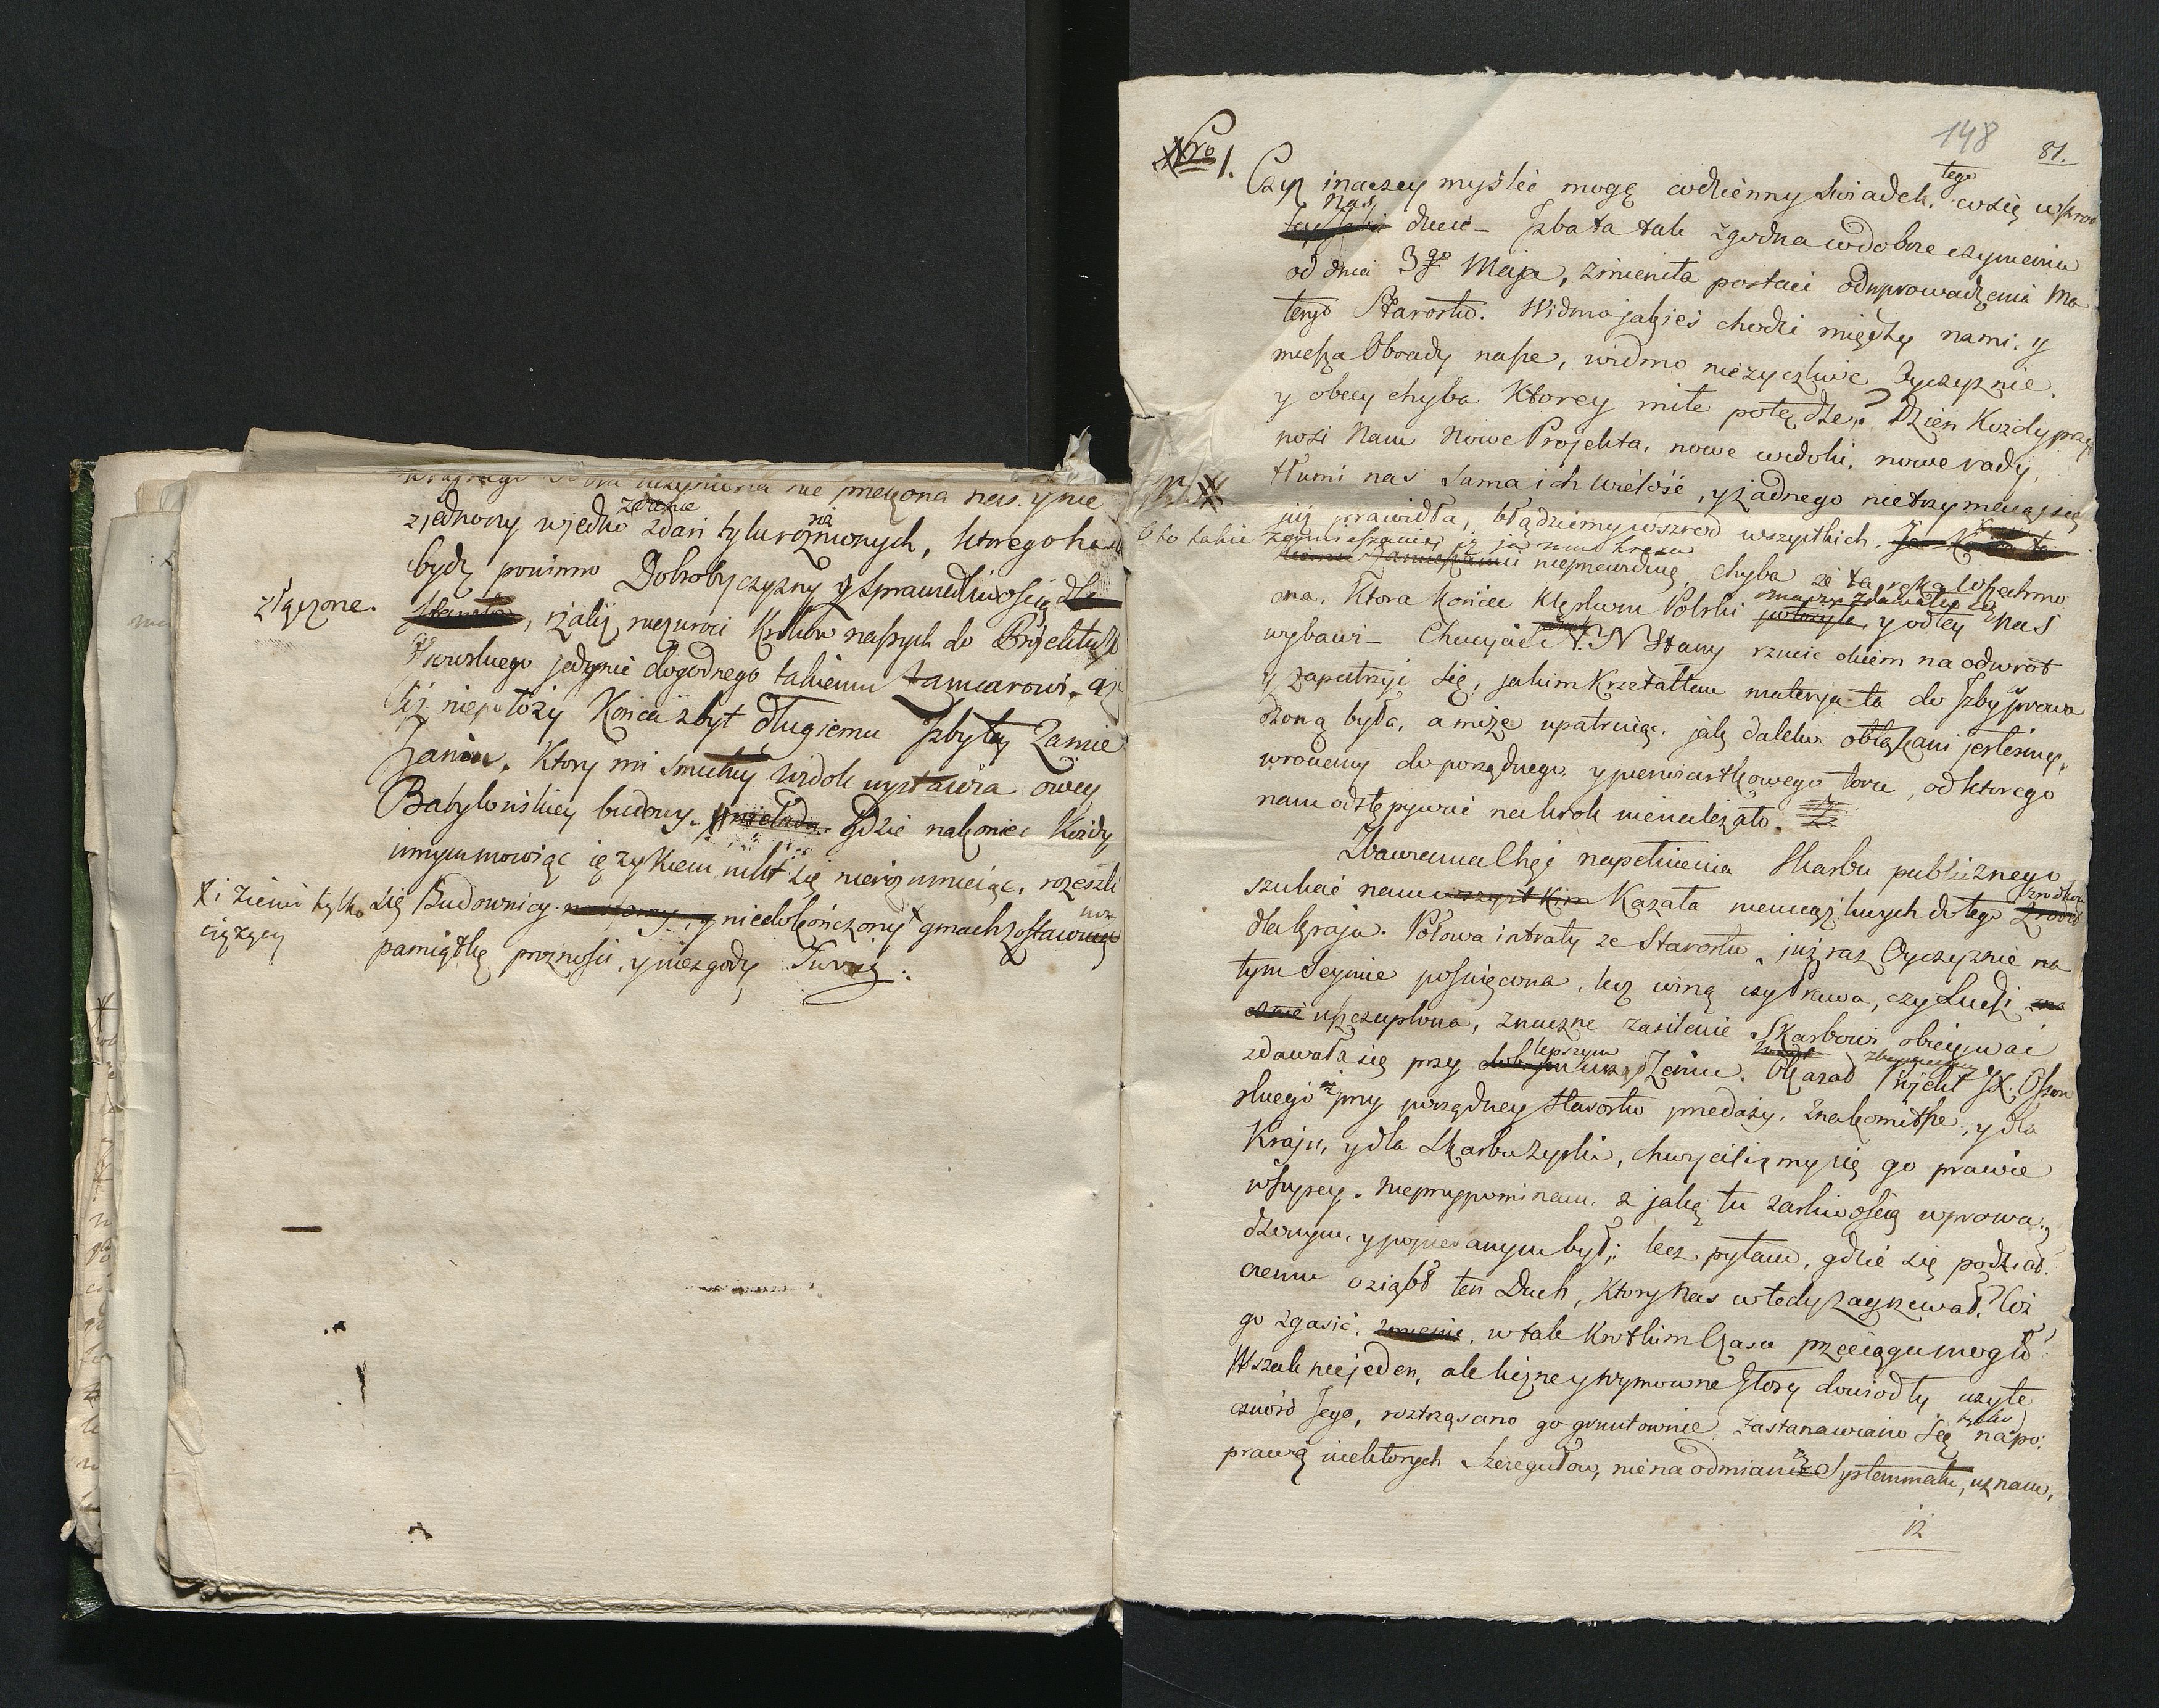 nie nas. y nie
zjednoczy wjedno zdanie zdań tylu rożnionych, ktorego hasłem
bydz powinno Dobro Oyczyzny y Sprawiedliwością
złączone.
, iżaliż niezwroci Krokow naszych do Projektu JX
Ossowskiego jedynie dogodnego takiemu zamiarowi, a
tż. niepołoży Koniec zbyt długiemu Izby tey Zamie
szaniu, Ktory mi smutny widok wystawia owey
Babylońskiey budowy. gdzie nakoniec Kożdy
innym mowiąc językiem nikt się nierozumieiąc, rozeszli
się Budownicy y niedokończony gmach zostawując
X i ziemi tylko
ciężący
pamiątkę prożności, y niezgody Tworzą.
148 81.
Nro 1.
Czyż inaczey myślić mogę codzienny Swiadek, tego co się wskroś
nas dzieie – Izba ta tak zgodna w dobrze czynieniu
od dnia 3go Maja, zmieniła postać od wprowadzenia Ma
teryi Starostw. Widmo jakieś chodzi między nami, y
miesza Obrady nasze, widmo nieżyczliwe Oyczyznie,
y obcey chyba Ktorey miłe potędze. Dzień Kożdy przy
nosi Nam Nowe Projekta, nowe widoki, nowe rady,
tłumi nas sama ich wielość, y żadnego nie trzymaiąc się
już prawidła, błądziemy wszrod wszystkich.
Oto takie
zamieszanie, iż już mu kresu
nieprzewidzę, chyba że ta ręka Wszechmo
cna, Ktora Koniec Klęskom Polski oznaczyć zdawała się y od tey Nas
wybawi – Chcieycie N. N Stany rzucić okiem na odwrot
y zapatrzyć się, jakim Krztałtem materya ta do Izby wprowa
dzoną była, a może upatruiąc, jak daleko obłąkani jesteśmy,
wrociemy do porządnego, y pierwiastkowego toru, od ktorego
nam odstępywać na krok nienależało.
Zbawienna Chęć napełnienia Skarbu publicznego
szukać nam Kazała nieuciążliwych do tego zrodłow
dla Kraju. Połowa intraty ze Starostw, już raz Oyczyznie na
tym Seymie poświęcona, lecz winą czy Prawa, czy Ludzi
uszczuplona, znaczne zasilenie Skarbowi obiecywać
zdawała się przy lepszym urządzeniu. Okazał Projekt JX. Ossow
skiego iż przy porządney Starostw przedaży, znakomitsze, y dla
Kraju, y dla Skarbu zyski, chwyciliśmy się go prawie
wszyscy. Nieprzypominam, z jaką tu żarliwością wprowa
dzonym, y popieranym był; lecz pytam, gdzie się podział?
czemu oziąbł ten Duch, Ktory Nas wtedy zagrzewał? Coż
go zgasić, w tak Krotkim Czasu przeciągu mogło?
Wszak nie jeden, ale liczne y wymowne Głosy dowiodły użyte
czność Jego, roztrząsano go gruntownie, zastanawiano się tylko na po
prawą niektorych szczegułow, nie na odmianę Systemmatu, uznano,
iż